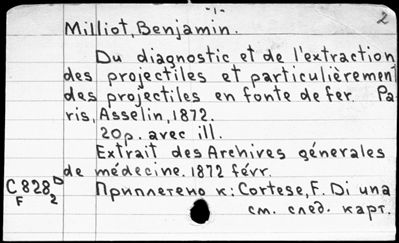 -1-
2
Milliot, Benjamin.
Du diagnostic et de l'extraction
des projectiles et particulièrement
des projectiles en fonte de fer. Pa-
ris, Asselin, 1872.
20p. avec ill.
Extrait des Archives génerales
de médecine. 1872 févr.
C 828 D Приплетено к: Cortese, F. Di una
F 2 см. след. карт.